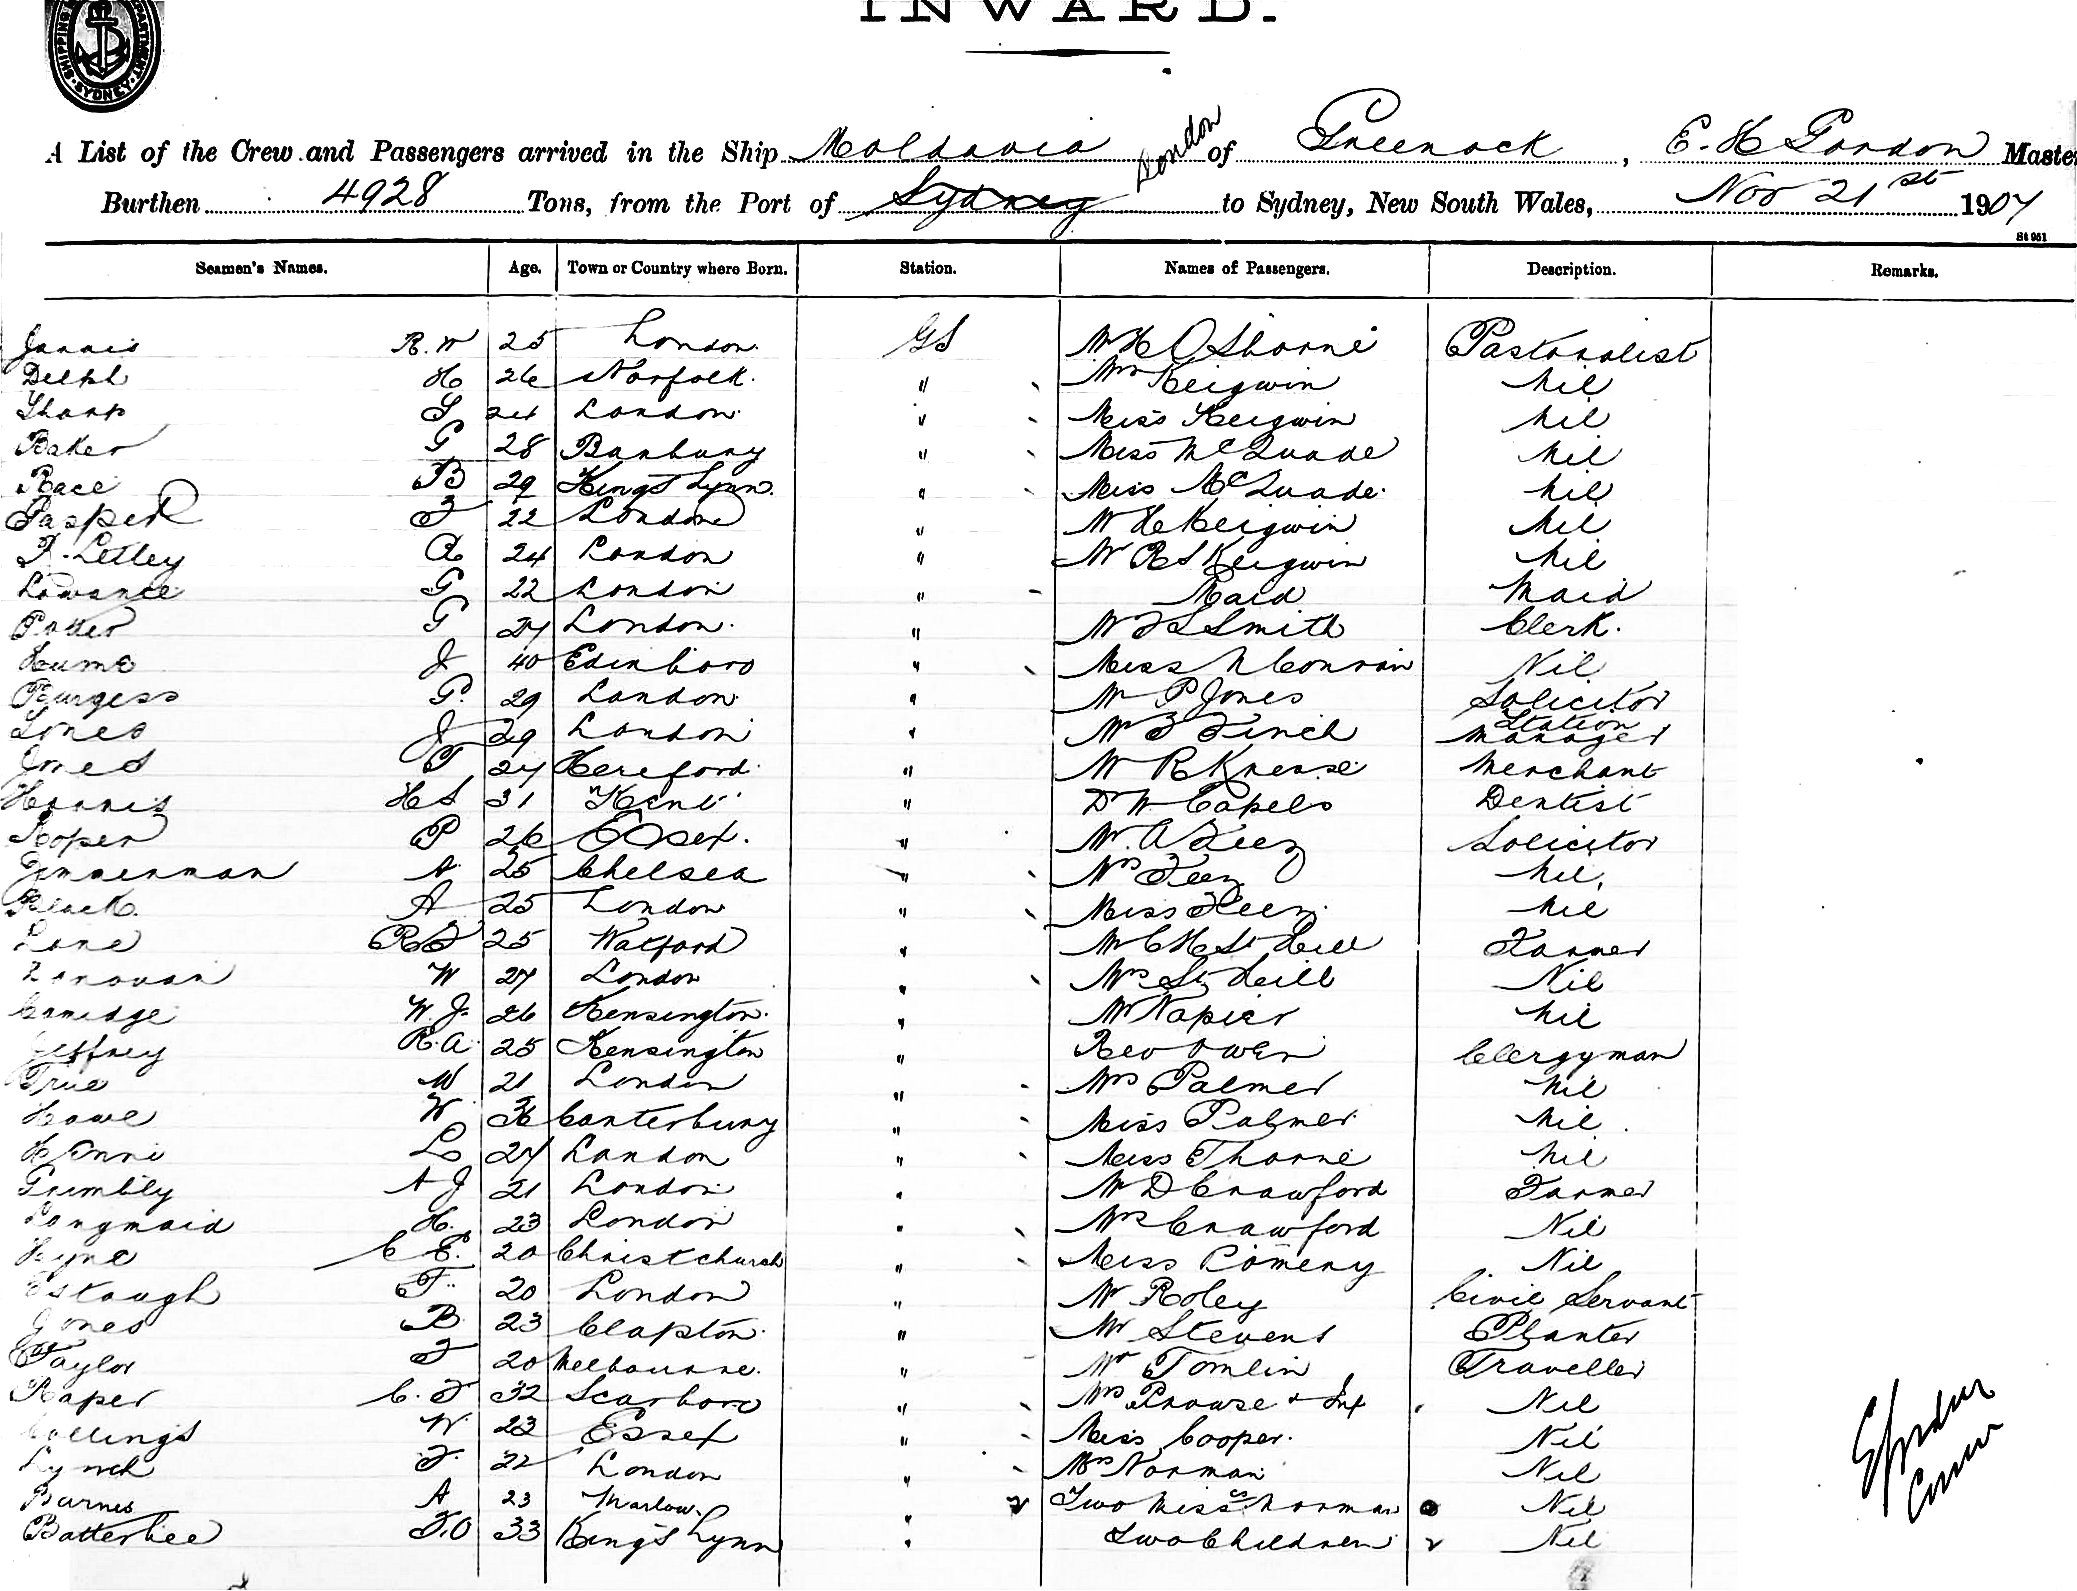 INWARD.
SHIPPING DEPARTMENT SYDNEY
A List of the Crew and Passengers arrived in the Ship Moldavia of Greenock, E. H Gordon Master
Burthen 4928 Tons, from the Port of Sydney London to Sydney, New South Wales, Nov 21st 1907
St 961
Seamen's Names. Age. Town or Country where Born. Station. Names of Passengers. Description. Remarks.
Jarvis R. W 25 London. GS Mr H Osborne Pastoralist
Delph H 26 Norfolk. " Mrs Keigwin Nil
Sharp S 24 London. " Miss Keigwin Nil
Baker G 28 Banbury " Miss McQuade Nil
Race B 29 Kings Lynn. " Miss McQuade. Nil
Gasper F 22 London " Mr H Keigwin Nil
T. Letley A 24 London " Mr R S Keigwin Nil
Lowance G 22 London " Maid Maid
Potter G 27 London. " Mr F S Smith Clerk.
Hume J 40 Edinboro " Miss M Conran Nil
Burgess G. 29 London. " Mr P Jones Solicitor
Jones J 29 London " Mr F Finch Station Manager
Jones T 27 Hereford. " Mr R Knesse Merchant
Harris H S 31 Kent " Dr W. Capels Dentist
Roper P 26 Essex. " Mr. A Feez Solicitor
Zimmerman A 25 Chelsea " Mrs Feez Nil.
Black A 25 London " Miss Feez. Nil
Lane R F 25 Watford " Mr C H St Hill Farmer
Donovan W 27 London " Mrs St Hill Nil
Corridge W. J. 26 Kensington. " Mr Napier Nil
Jeffrey R. A. 25 Kensington " Rev Owen Clergyman
True W 21 London " Mrs Palmer Nil
Howe W 36 Canterbury " Miss Palmer Nil.
L 27 London " Miss Thorne Nil
Grimbly A J 21 London " Mr D Crawford Farmer
Longmaid H. 23 London " Mrs Crawford Nil
Hyne C E. 20 Christchurch " Miss Pomeny Nil
Estaugh F. 20 London " Mr Roley Civil Servant
Jones B. 23 Clapton. " Mr Stevens Planter
Taylor F 20 Melbourne. " Mr Tomlin Traveller
Raper C. F 32 Scarboro " Mrs Prowse & Inf Nil
Collings W 23 Essex " Miss Cooper. Nil
Lynch F. 22 London " Mrs Norman Nil
Barnes A 23 Marlow. " Two Misses Norman Nil
Batterbee F. O 33 King's Lynn " Two Children Nil